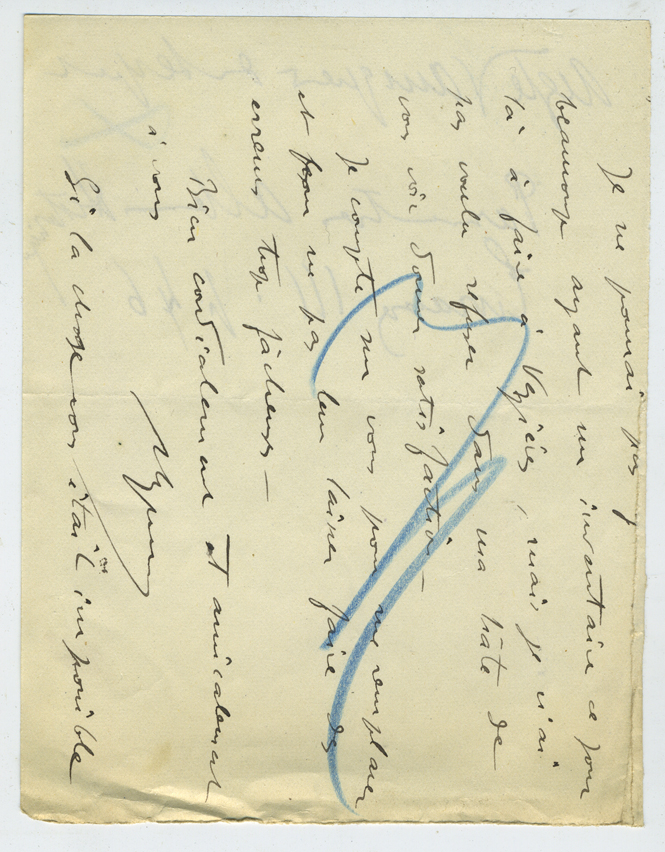 Je ne pourrai pas
beaucoup ayant un inventaire ce jour
là à faire à Vézières, mais je n'ai
pas voulu refuser dans ma hâte de
vous voir donner satisfaction —
Je compte sur vous pour me remplacer
et pour ne pas leur laisser faire des
erreurs trop fâcheuses —
Bien cordialement et amicalement
à vous
Si la chose vous était impossible